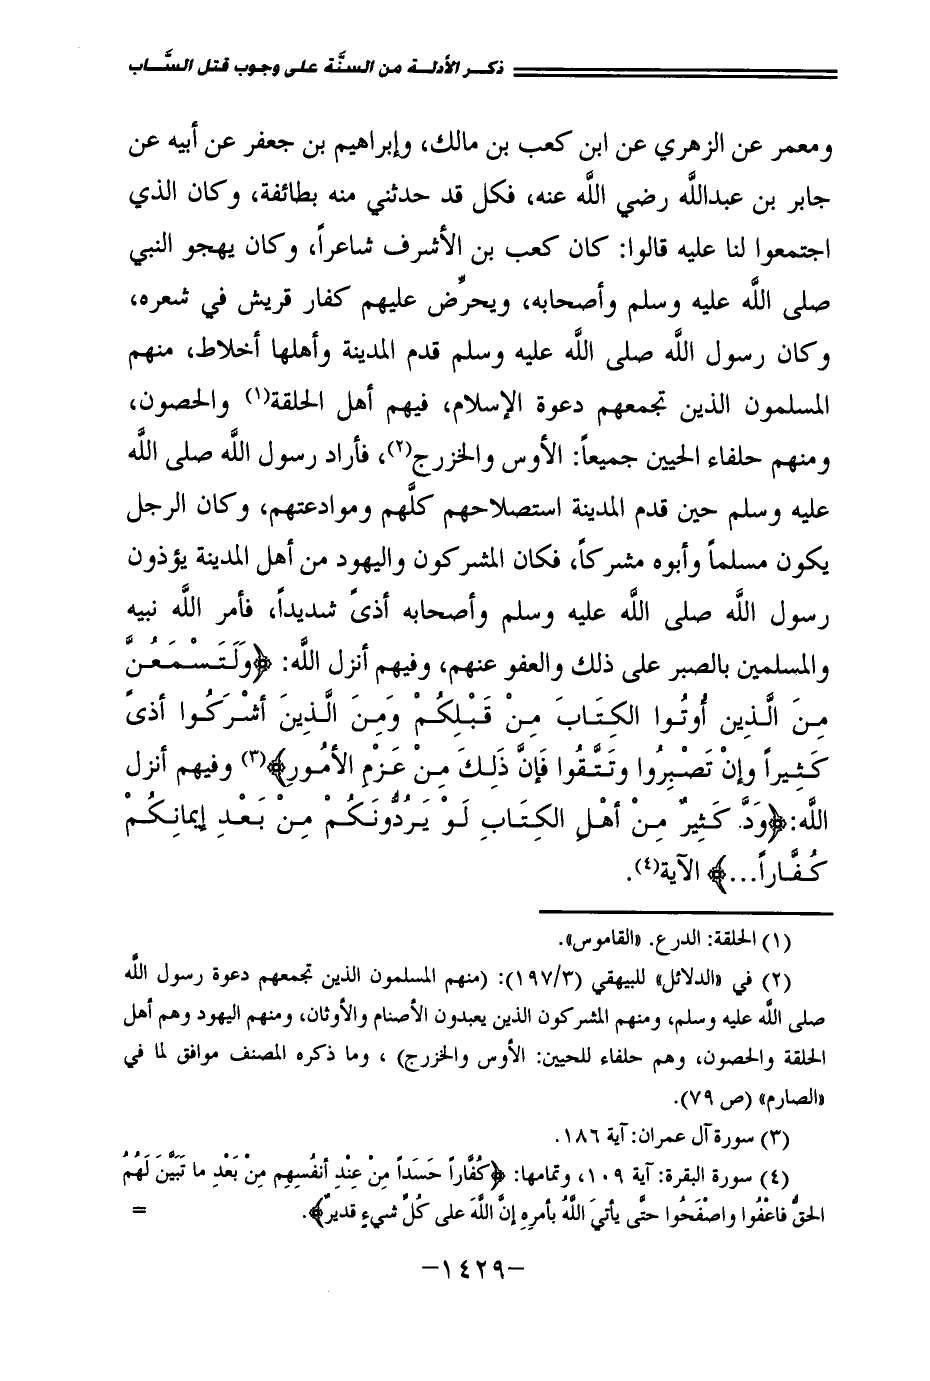 ذكر الأدلة من السنَّة على وجوب قتل السَّاب
ومعمر عن الزهري عن ابن كعب بن مالك، وإبراهيم بن جعفر عن أبيه عن
جابر بن عبداللَّه رضي اللَّه عنه، فكل قد حدثني منه بطائفة، وكان الذي
اجتمعوا لنا عليه قالوا: كان كعب بن الأشرف شاعراً، وكان يهجو النبي
صلى اللَّه عليه وسلم وأصحابه، ويحرِّض عليهم كفار قريش في شعره،
وكان رسول اللَّه صلى اللَّه عليه وسلم قدم المدينة وأهلها أخلاط، منهم
المسلمون الذين تجمعهم دعوة الإسلام، فيهم أهل الحلقة(١) والحصون،
ومنهم حلفاء الحيين جميعاً: الأوس والخزرج(٢)، فأراد رسول اللَّه صلى اللَّه
عليه وسلم حين قدم المدينة استصلاحهم كلَّهم وموادعتهم، وكان الرجل
يكون مسلماً وأبوه مشركاً، فكان المشركون واليهود من أهل المدينة يؤذون
رسول اللَّه صلى اللَّه عليه وسلم وأصحابه أذىً شديداً، فأمر اللَّه نبيه
والمسلمين بالصبر على ذلك والعفو عنهم، وفيهم أنزل اللَّه: ﴿وَلَتَسْمَعُنَّ
مِنَ الَّذِين أُوتُوا الكِتَابَ مِنْ قَبْلِكُمْ وَمِنَ الَّذِينَ أشْرَكُوا أذىً
كَثِيراً وإنْ تَصْبِرُوا وتَتَّقُوا فَإنَّ ذَلِكَ مِنْ عَزْمِ الأمُورِ﴾(٣) وفيهم أنزل
اللَّه: ﴿وَدَّ كَثِيرٌ مِنْ أهْلِ الكِتَابِ لَوْ يَرُدُّونَكُمْ مِنْ بَعْدِ إيمَانِكُمْ
كُفَّاراً...﴾ الآية(٤).
(١) الحلقة: الدرع. «القاموس».
(٢) في «الدلائل» للبيهقي (١٩٧/٣): (منهم المسلمون الذين تجمعهم دعوة رسول اللَّه
صلى اللَّه عليه وسلم، ومنهم المشركون الذين يعبدون الأصنام والأوثان، ومنهم اليهود وهم أهل
الحلقة والحصون، وهم حلفاء للحيين: الأوس والخزرج) ، وما ذكره المصنف موافق لما في
«الصارم» (ص ٧٩).
(٣) سورة آل عمران: آية ١٨٦.
(٤) سورة البقرة: آية ١٠٩، وتمامها: ﴿كُفَّاراً حَسَداً مِنْ عِنْدِ أنفُسِهِم مِنْ بَعْدِ ما تَبَيَّنَ لَهُمُ
الحَقُّ فاعْفُوا واصْفَحُوا حتَّى يأتيَ اللَّهُ بأمرِهِ إنَّ اللَّهَ على كُلِّ شيءٍ قديرٌ﴾. =
-١٤٢٩-